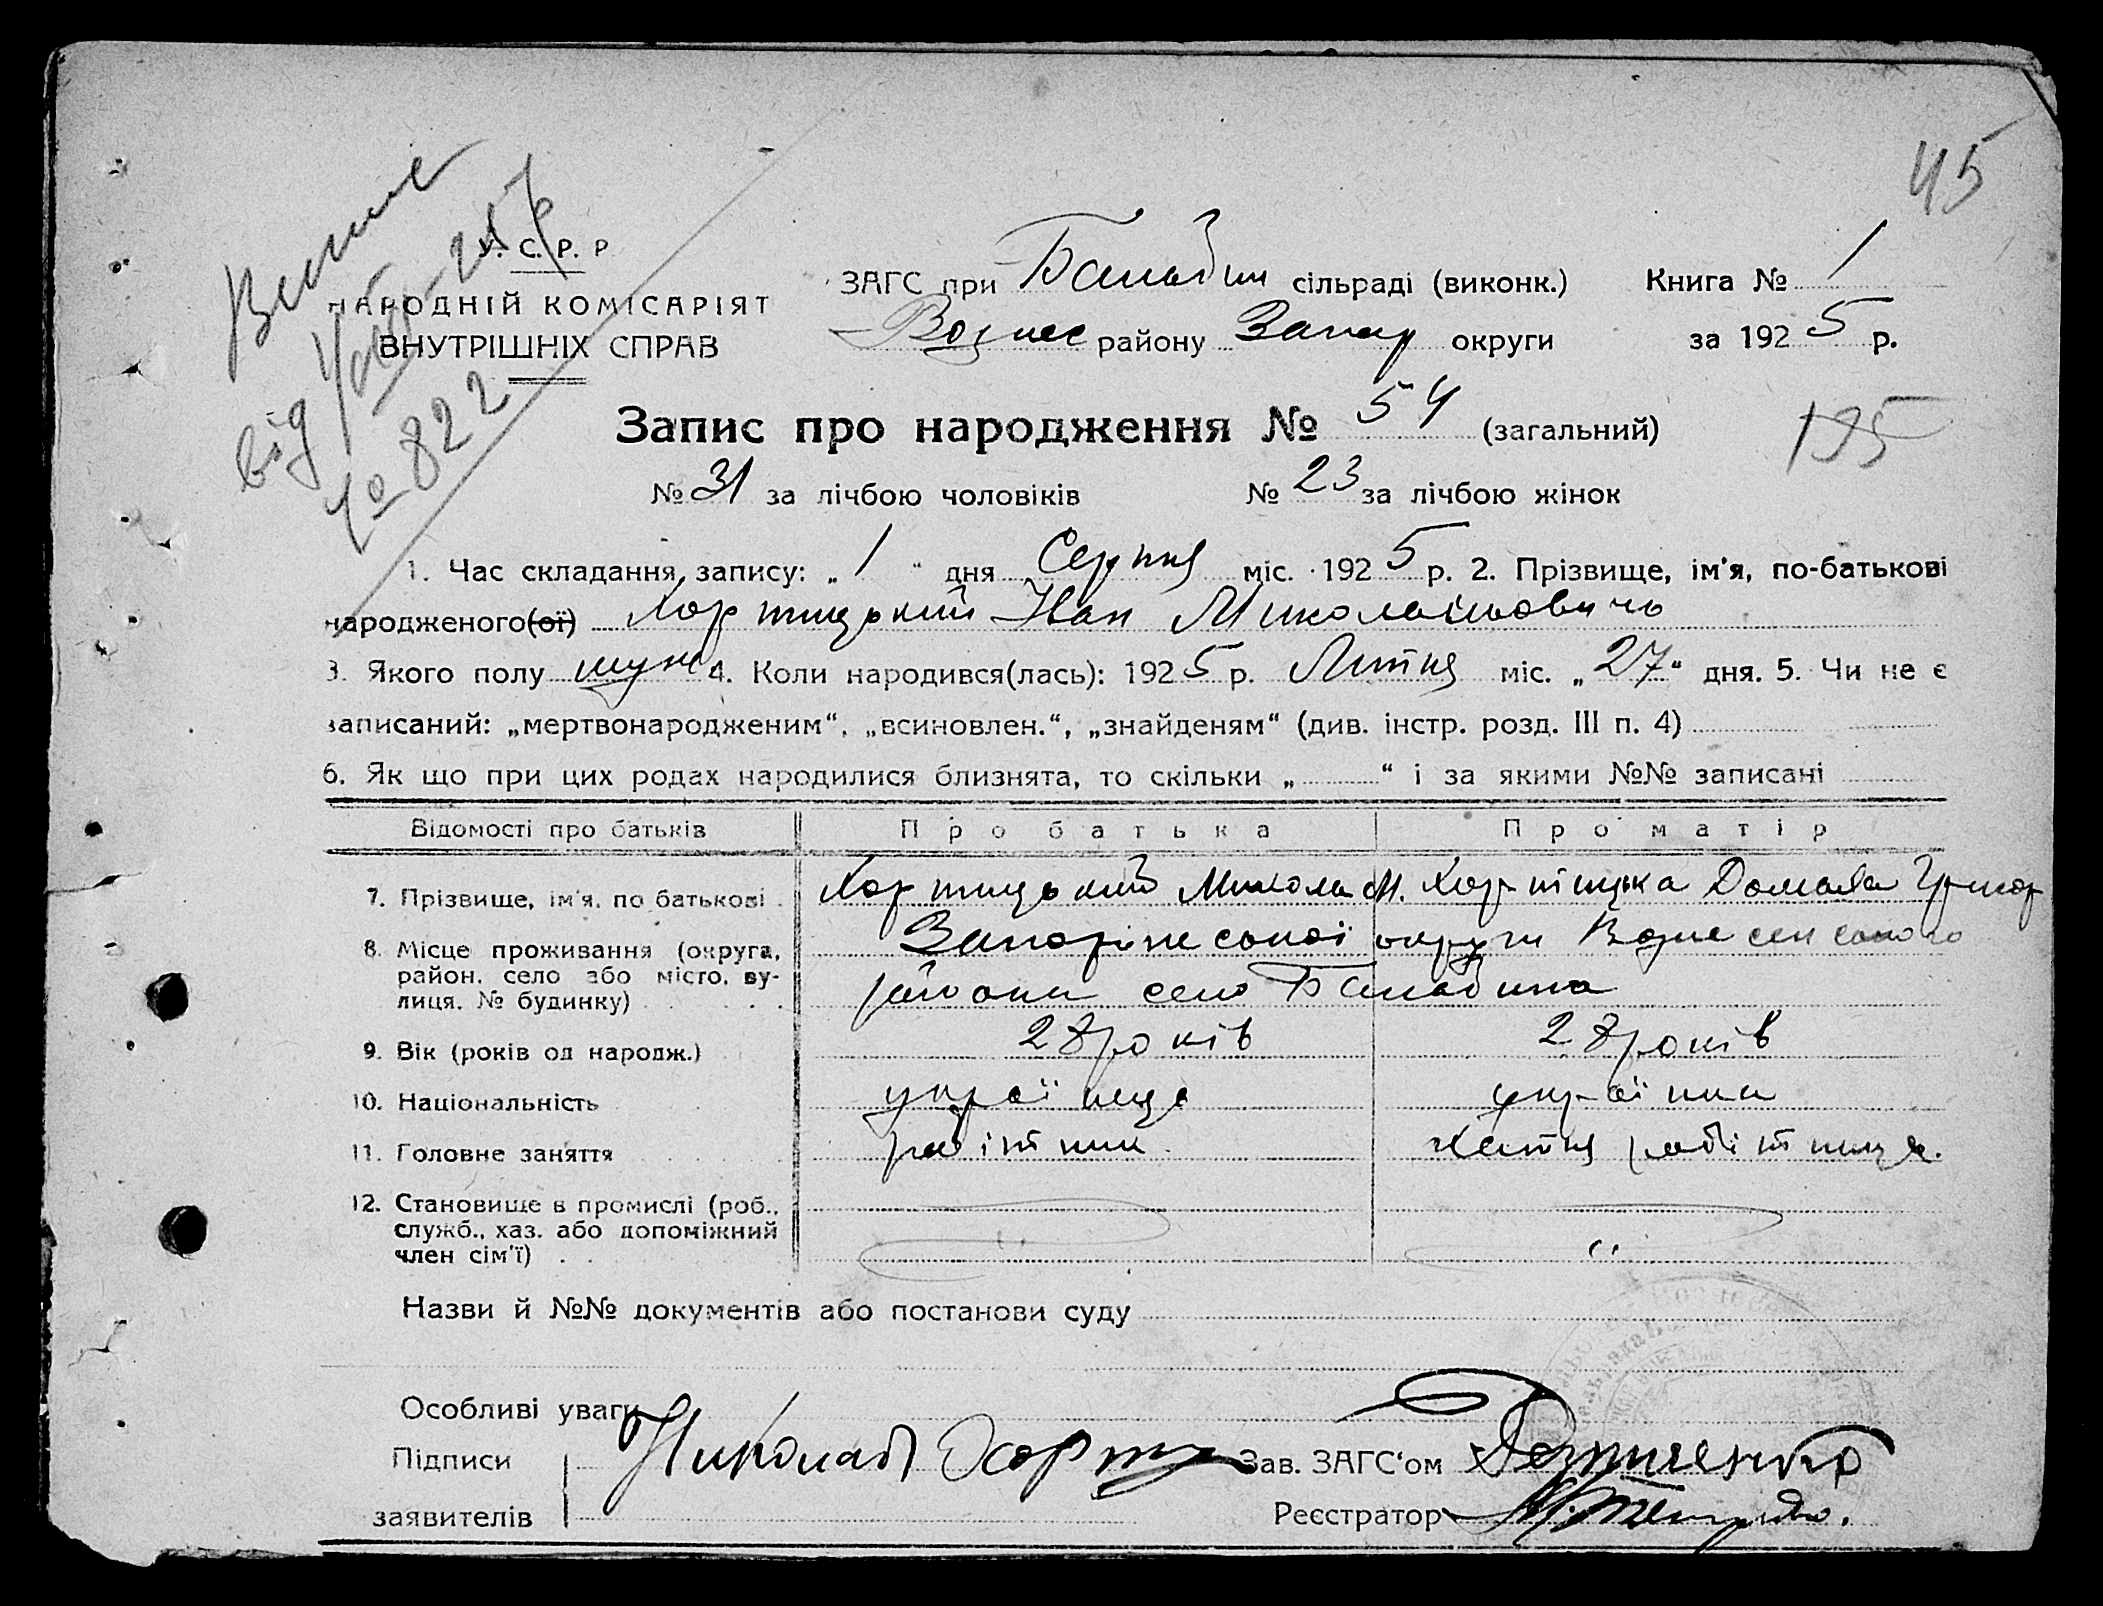 45
У. С. Р. Р
НАРОДНІЙ КОМІСАРІЯТ
ВНУТРІШНІХ СПРАВ
від
№ 822
ЗАГС при Балабин сільраді (виконк.) Книга № 1
Вознес району Запор округи за 1925 р.
Запис про народження № 54 (загальний)
195
№ 31 за лічбою чоловіків № 23 за лічбою жінок
1. Час складання запису: „1“ дня Серпня міс. 1925 р. 2. Прізвище, ім'я, по-батькові
народженого(ої) Хортицький Іван Миколайовичь
3. Якого полу муж 4. Коли народився(лась): 1925 р. Липня міс. „27“ дня. 5. Чи не є
записаний: „мертвонародженим“, „всиновлен.“, „знайденям“ (див. інстр. розд. III п. 4)
6. Як що при цих родах народилися близнята, то скільки „ “ і за якими №№ записані
Відомості про батьків Про батька Про матір
7. Прізвище, ім'я, по батькові Хортицький Микола М. Хортицька Домаха Григор
8. Місце проживання (округа, район, село або місто, вулиця, № будинку) Запоріжської округи Вознесенського
району село Балабина
9. Вік (років од народж.) 28 років 28 років
10. Національність українець українка
11. Головне заняття робітник хатня робітниця.
12. Становище в промислі (роб.,
служб., хаз. або допоміжний
член сім'ї)
Назви й №№ документів або постанови суду
Особливі уваги
Підписи Николай Хорти Зав. ЗАГС'ом
заявителів Реєстратор